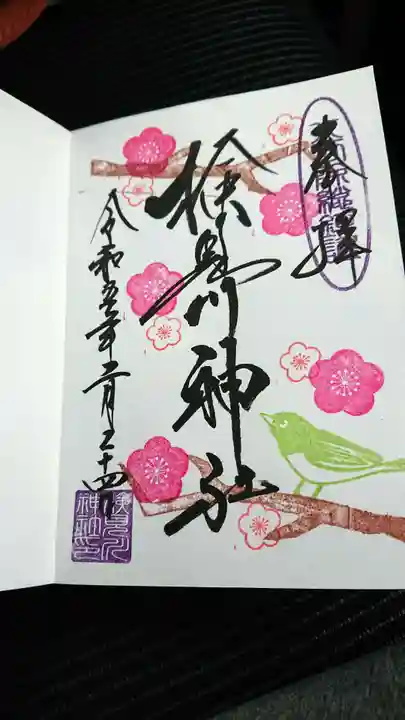 奉拝
検見川神社
令和五年二月二十四日
検見川
神社印